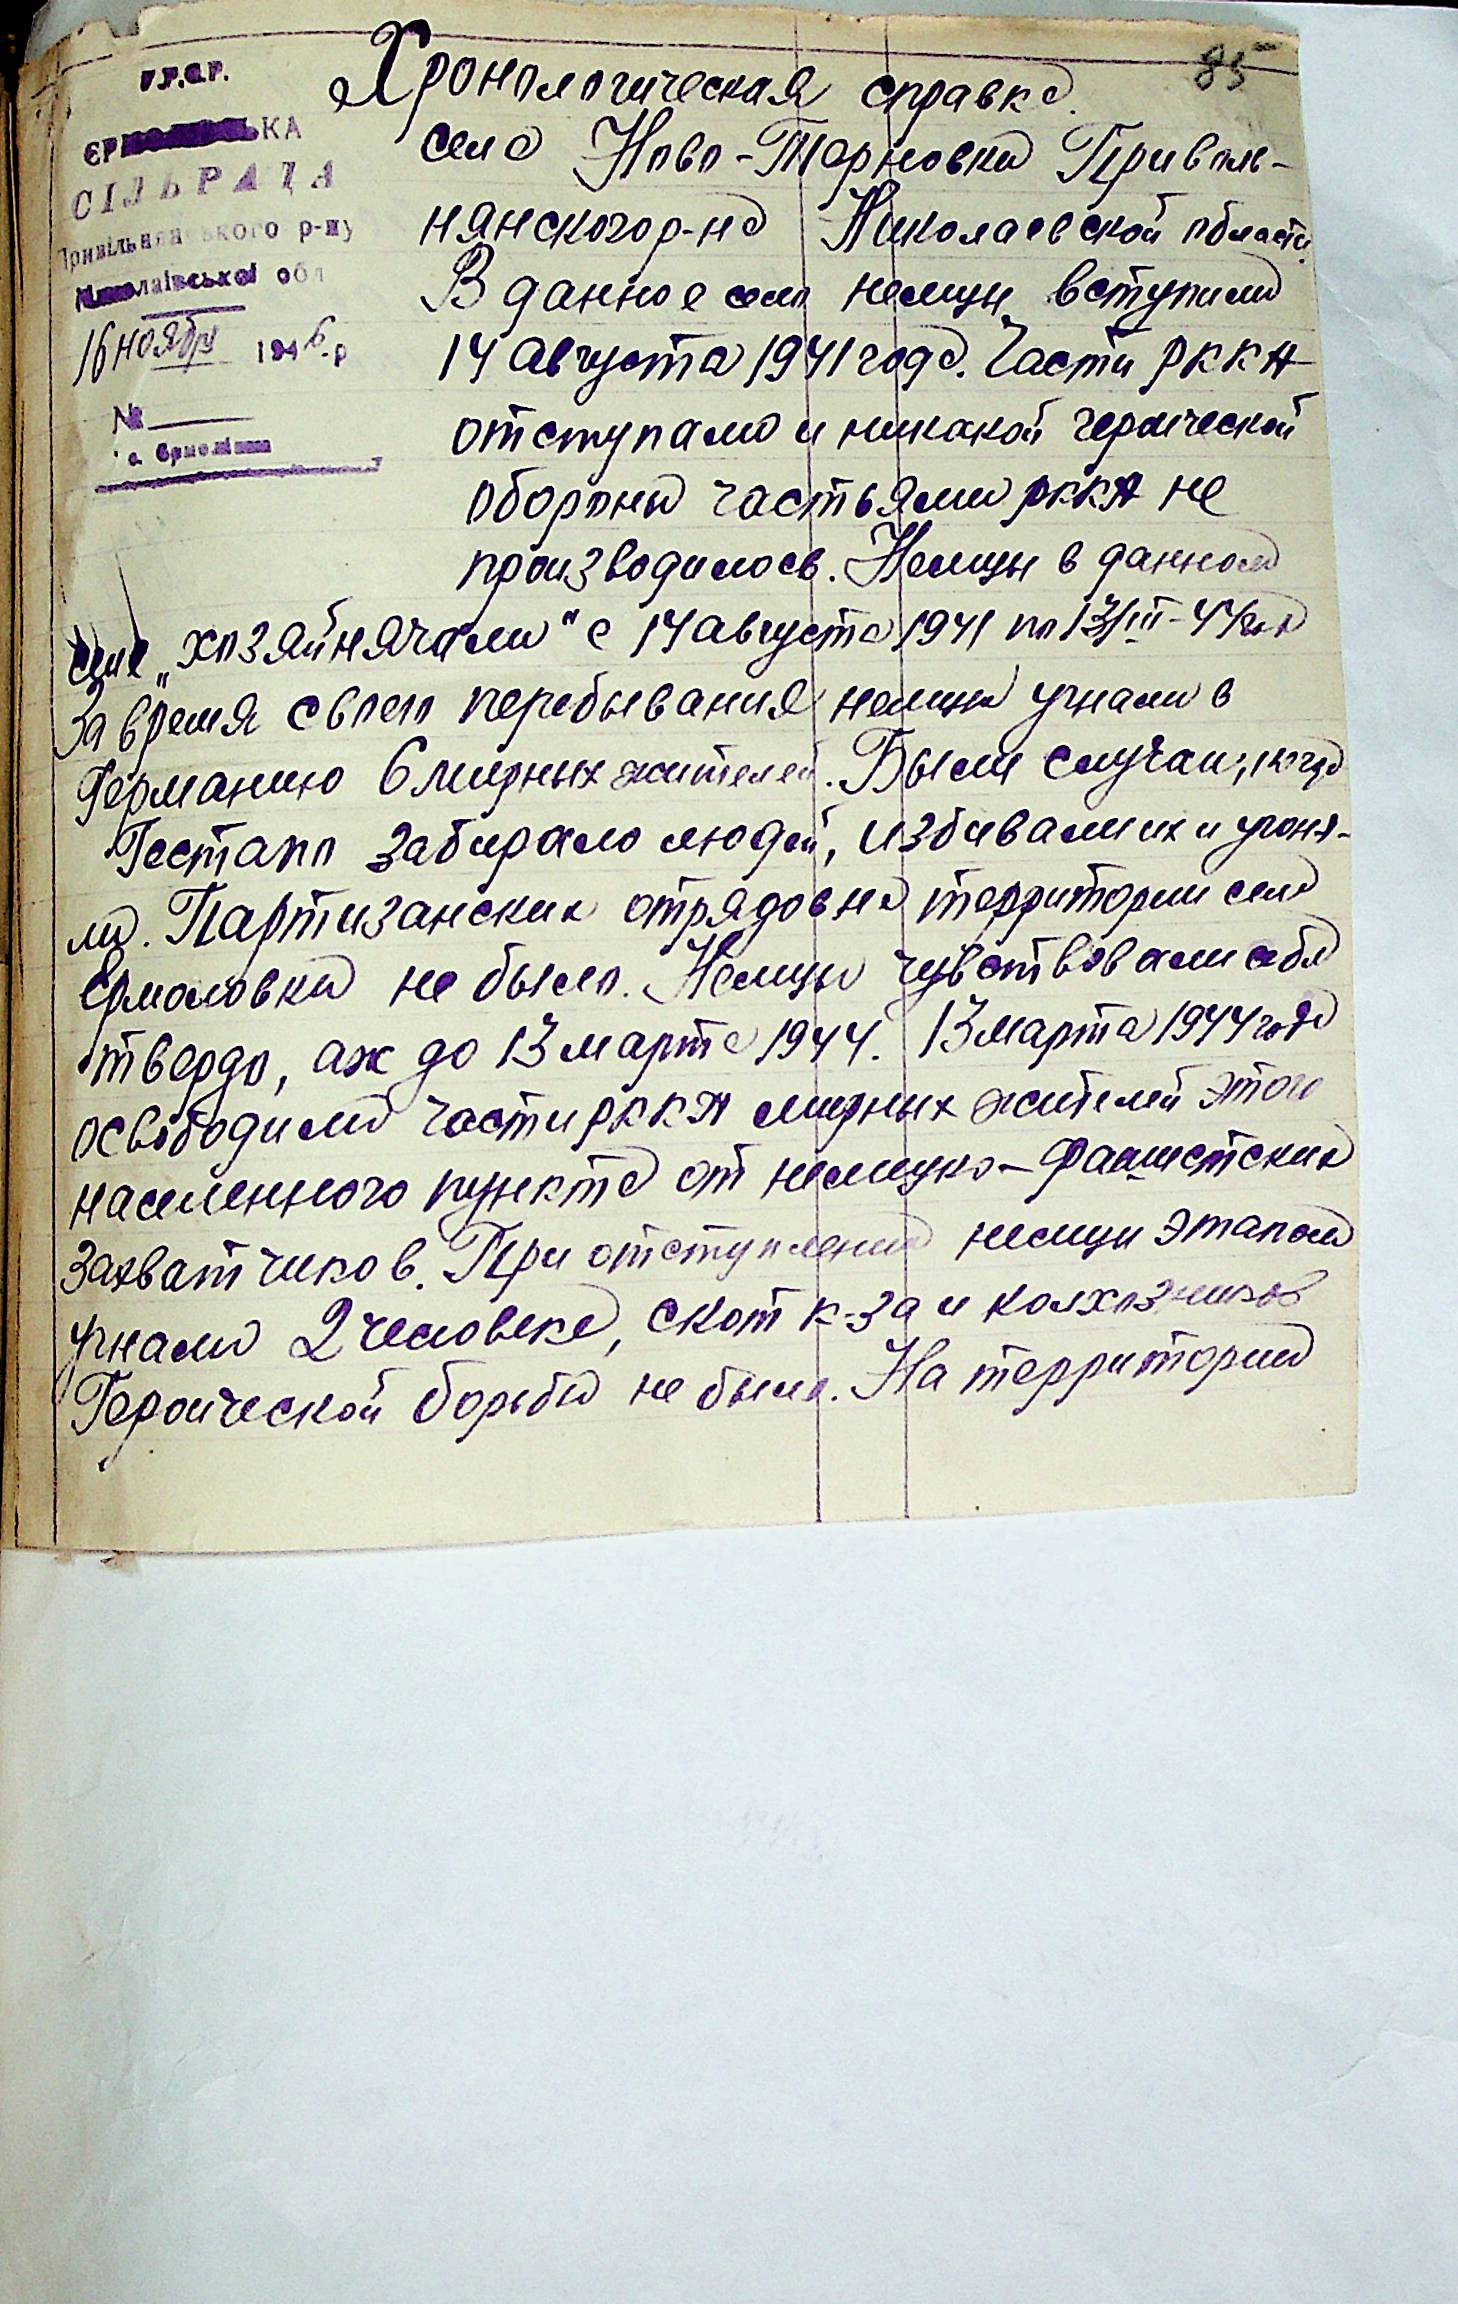 85
У.Р.С.Р.
СІЛЬРАДА
Привільнянського р-ну
Миколаївської обл
16 ноября 1946 р
№
с. Єрмолівка
Хронологическая справка
села Ново-Терновки Приволь-
нянского р-на Николаевской области.
В данное село немцы вступили
14 августа 1941 года. Части РККА
отступали и никакой героической
обороны частьями РККА не
производилось. Немцы в данном
селе „хозяйнячали" с 14 августа 1941 по 13/III-44 год
За время своего перебывания немцы угнали в
Германию 6 мирных жителей. Были случаи, когда
Гестапо забирало людей, избивали их и угоня-
ли. Партизанских отрядов на территории села
Ермоловки не было. Немцы чувствовали себя
твердо, аж до 13 марта 1944. 13 марта 1944 года
освободили части РККА мирных жителей этого
населенного пункта от немецко-фашистских
захватчиков. При отступлении немцы этапом
угнали 2 человека, скот к-за и колхозников
Героической борьбы не было. На территории